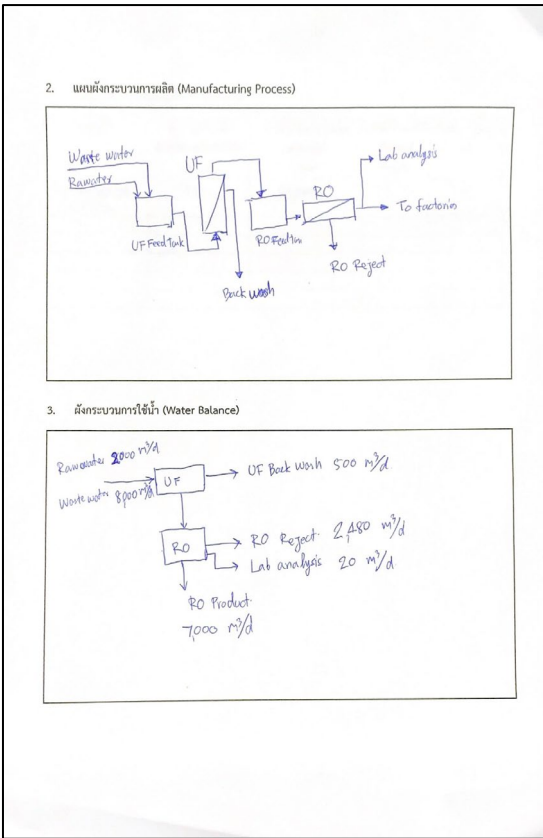 2. แผนผังกระบวนการผลิต (Manufacturing Process)
Waste water
Rawater
UF
UF Feed Tank
Back wash
RO Feed Tan
RO
Lab analysis
To factorin
RO Reject
3. ผังกระบวนการใช้น้ำ (Water Balance)
Rawwater 2000 m³/d
Waste water 8,000 m³/d
UF
UF Back Wash 500 m³/d
RO
RO Reject 2,480 m³/d
Lab analysis 20 m³/d
RO Product
7,000 m³/d